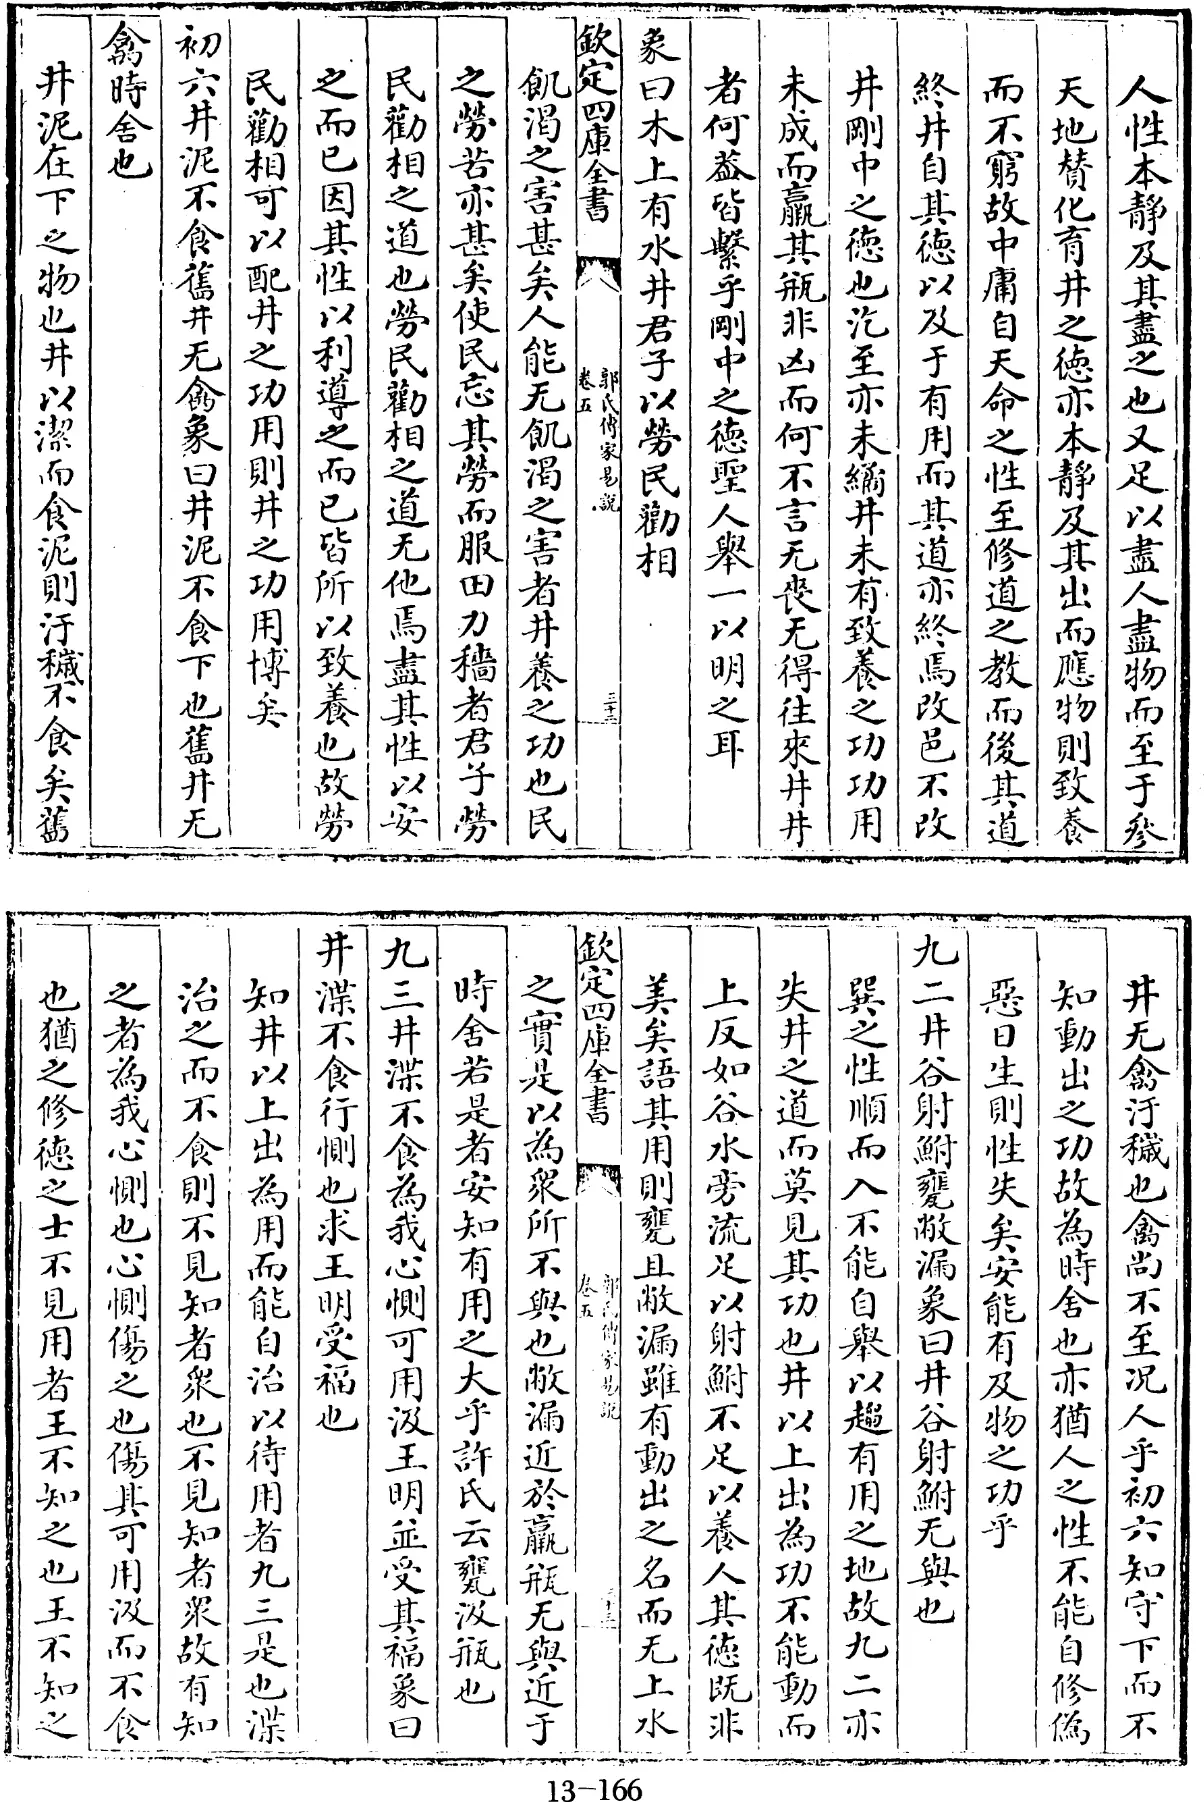 人性本靜及其盡之也又足以盡人盡物而至于參
天地賛化育井之徳亦本靜及其出而應物則致養
而不窮故中庸自天命之性至修道之教而後其道
終井自其徳以及于有用而其道亦終焉改邑不改
井剛中之徳也汔至亦未繘井未有致養之功功用
未成而羸其瓶非凶而何不言无喪无得往來井井
者何益皆繫乎剛中之徳聖人舉一以明之耳
象曰木上有水井君子以勞民勸相
欽定四庫全書
郭氏傳家易說
卷五
三十二
飢渴之害甚矣人能无飢渴之害者井養之功也民
之勞苦亦甚矣使民忘其勞而服田力穡者君子勞
民勸相之道也勞民勸相之道无他焉盡其性以安
之而已因其性以利導之而已皆所以致養也故勞
民勸相可以配井之功用則井之功用博矣
初六井泥不食舊井无禽象曰井泥不食下也舊井无
禽時舍也
井泥在下之物也井以潔而食泥則汙穢不食矣舊
井无禽汙穢也禽尚不至况人乎初六知守下而不
知動出之功故為時舍也亦猶人之性不能自修僞
惡日生則性失矣安能有及物之功乎
九二井谷射鮒甕敝漏象曰井谷射鮒无與也
巽之性順而入不能自舉以趨有用之地故九二亦
失井之道而莫見其功也井以上出為功不能動而
上反如谷水旁流足以射鮒不足以養人其徳既非
美矣語其用則甕且敝漏雖有動出之名而无上水
欽定四庫全書
郭氏傳家易說
卷五
三十三
之實是以為衆所不與也敝漏近於羸瓶无與近于
時舍若是者安知有用之大乎許氏云甕汲瓶也
九三井渫不食為我心惻可用汲王明並受其福象曰
井渫不食行惻也求王明受福也
知井以上出為用而能自治以待用者九三是也渫
治之而不食則不見知者衆也不見知者衆故有知
之者為我心惻也心惻傷之也傷其可用汲而不食
也猶之修徳之士不見用者王不知之也王不知之
13-166